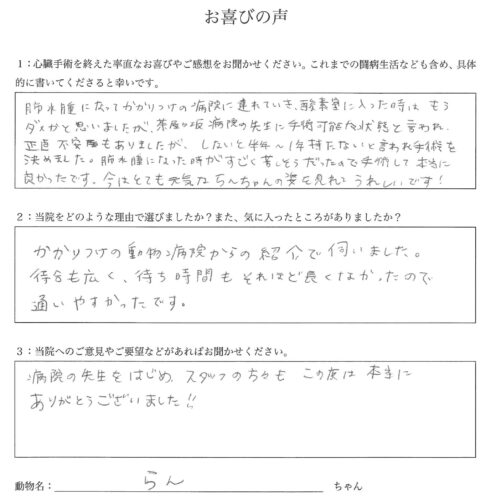 お喜びの声
1：心臓手術を終えた率直なお喜びやご感想をお聞かせください。これまでの闘病生活なども含め、具体
的に書いてくださると幸いです。
肺水腫になってかかりつけの病院に連れていき、酸素室に入った時は もう
ダメかと思いましたが、茶屋ヶ坂病院の先生に手術可能な状態と言われ、
正直 不安もありましたが、しないと半年～1年持たないと言われ手術を
決めました。肺水腫になった時がすごく苦しそうだったので手術して 本当に
良かったです。今はとても元気ならんちゃんの姿を見れて うれしいです！
2：当院をどのような理由で選びましたか？また、気に入ったところがありましたか？
かかりつけの動物病院からの紹介で伺いました。
待合も広く、待ち時間もそれほど長くなかったので
通いやすかったです。
3：当院へのご意見やご要望などがあればお聞かせください。
病院の先生をはじめ、スタッフの方々も この度は 本当に
ありがとうございました!!
動物名： らん ちゃん